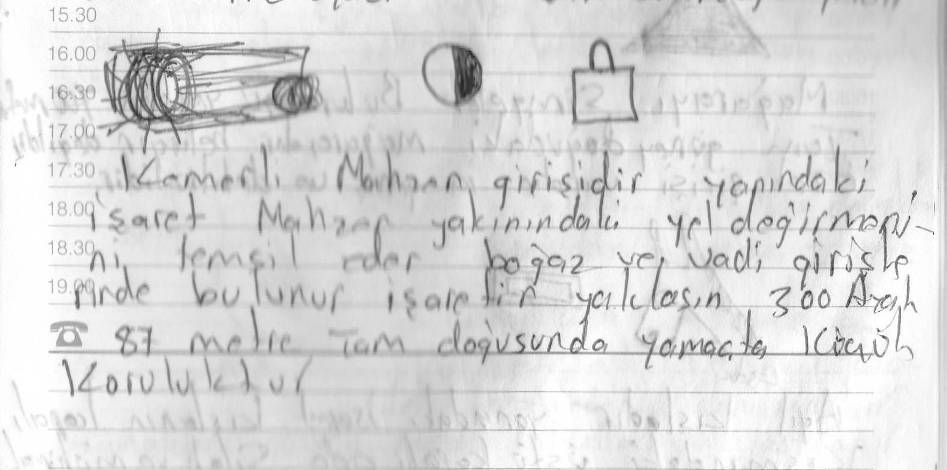 15.30
16.00
16.30
17.00
17.30 Kemerli Mahzen girişidir yanındaki
18.00 işaret Mahzen yakınındaki yel değirmeni-
18.30 ni temsil eder boğaz ve vadi girişle
19.00 rinde bulunur işaretin yaklaşın 300
87 metre Tam doğusunda yamaçta Küçük
Koruluktur